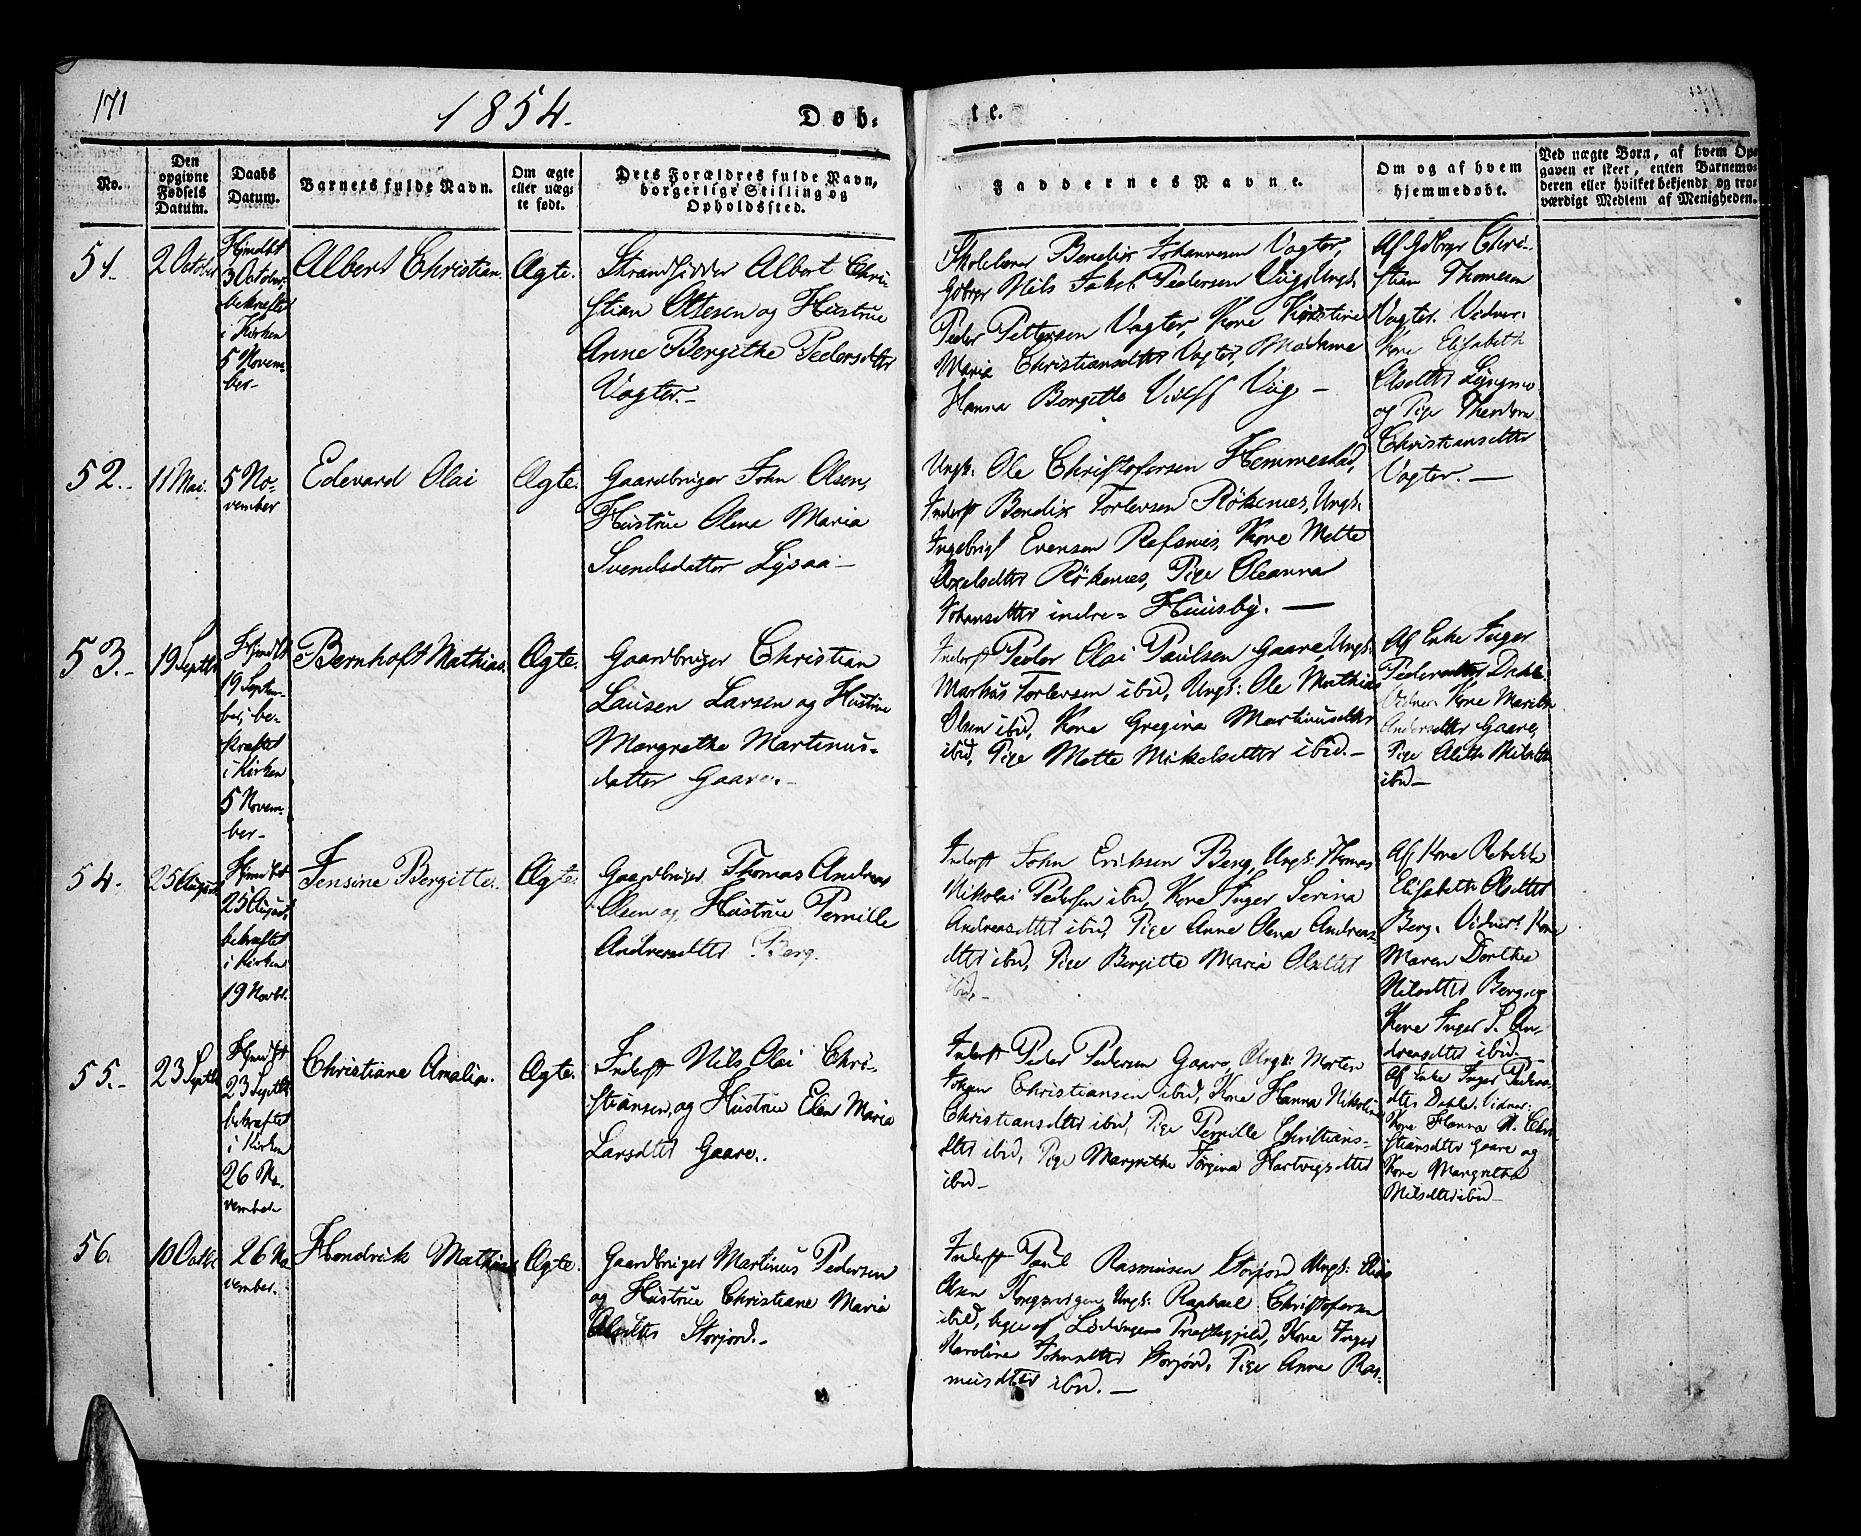 171
1854.
Døb-
te.
No.
Den
opgivne
Fødsels
Datum.
Daabs
Datum.
Barnets fulde Navn.
Om ægte
eller uæg-
te født.
Dets Forældres fulde Navn,
borgerlige Stilling og
Opholdssted.
Faddernes Navne.
Om og af hvem
hjemmedøbt.
Ved uægte Børn, af hvem Op-
gaven er skeet, enten Barnemo-
deren eller hvilket bekjendt og tro-
værdigt Medlem af Menigheden.
51.
2 October
Hjmdbt
3 October
bekræftet
i Kirken
5 Novem-
ber
Albert Christian.
Ægte.
Strandsidder Albert Chri-
stian Olsen og Hustrue
Anne Bergithe Pedersdtter
Vagter.
Skolelærer Bendix Johannesen Vagter,
Gdbrgr Nils Jakob Pedersen Ungk:
Peder Pettersen Vagter, Kone Kirstine
Maria Christiansdtter Vagter, Madame
Hanna Bergitte
Af Gdbrgr Chri-
stian Thomesen
Vagter. Vidner:
Kone Elisabeth
Olsdtter
og Pige Theodora
Christiansdtter
Vagter.
52.
11 Mai.
5 No-
vember
Edevard Olai
Ægte.
Gaardbruger John Olsen,
Hustrue Olena Maria
Svendsdatter Lysaa
Ungk: Ole Christofersen Hemmestad,
Inderst Bendix Torlevsen Rökenes, Ungk:
Ingebrigt Evensen Refsnes, Kone Mette
Axelsdtter Rökenes, Pige Oleanna
Johansdtter indre Huusby.
53.
19 Septbr
Hjmdbt
19 Septem-
ber, be-
kræftet
i Kirken
5 Novem-
ber
Bernhoft Mathias.
Ægte.
Gaardbruger Christian
Lausen Larsen og Hustrue
Margrethe Martinus-
datter Gaare.
Inderst Peder Olai Paulsen Gaare, Ungk:
Markus Torlevsen ibid, Ungk: Ole Mathias
Olsen ibid, Kone Gregina Martinusdtter
ibid, Pige Mette Mikelsdtter ibid.
Af Enke Inger
Pedersdtter Dahle.
Vidner: Kone Marith
Andersdtter Gaare,
Pige Aleth
ibid
54.
25 August
Hjmdbt
25 August,
bekræftet
i Kirken
19 Novbr.
Jensine Bergitte.
Ægte.
Gaardbruger Thomas Andreas
Olsen og Hustrue Pernille
Andreasdtter Berg.
Inderst John Eriksen Berg, Ungk: Thomas
Nikolai Pedersen ibid, Kone Inger Serina
Andreasdtter ibid, Pige Anne Olena Andreas-
dtter ibid, Pige Bergitte Maria Olsdtter
ibid.
Af Kone Rebekka
Elisabeth Olsdtter
Berg. Vidner: Kone
Maren Dorthea
Nilsdtter Berg og
Kone Inger S. An-
dreasdtter ibid.
55.
23 Septbr
Hjmdbt
23 Septbr
bekræftet
i Kirken
26 No-
vember
Christiane Amalia.
Ægte.
Inderst Nils Olai Chri-
stiansen, og Hustrue Elen Maria
Larsdtter Gaare.
Inderst Peder Pedersen Gaare, Ungk: Morten
Johan Christiansen ibid, Kone Hanna Nikoline
Christiansdtter ibid, Pige Pernille Christians-
dtter ibid, Pige Margrethe Jörgina Hartvigsdtter
ibid
Af Enke Inger Peders-
dtter Dahle. Vidner:
Kone Hanna N. Chri-
stiansdtter Gaare og
Kone Margretha
Nilsdtter ibid
56.
10 Octbr
26 No-
vember.
Hendrik Mathias
Ægte.
Gaardbruger Martinus Pedersen
og Hustrue Christiane Maria
Olsdtter Storjord.
Inderst Paul Rasmusen Storjord, Ungk: Elias
Olsen Kongsvigen, Ungk: Raphael Christofersen
ibid, begge af Lödingens Præstegjeld, Kone Inger
Karoline Johnsdtter Storjord, Pige Anne Ras-
musdtter ibid.